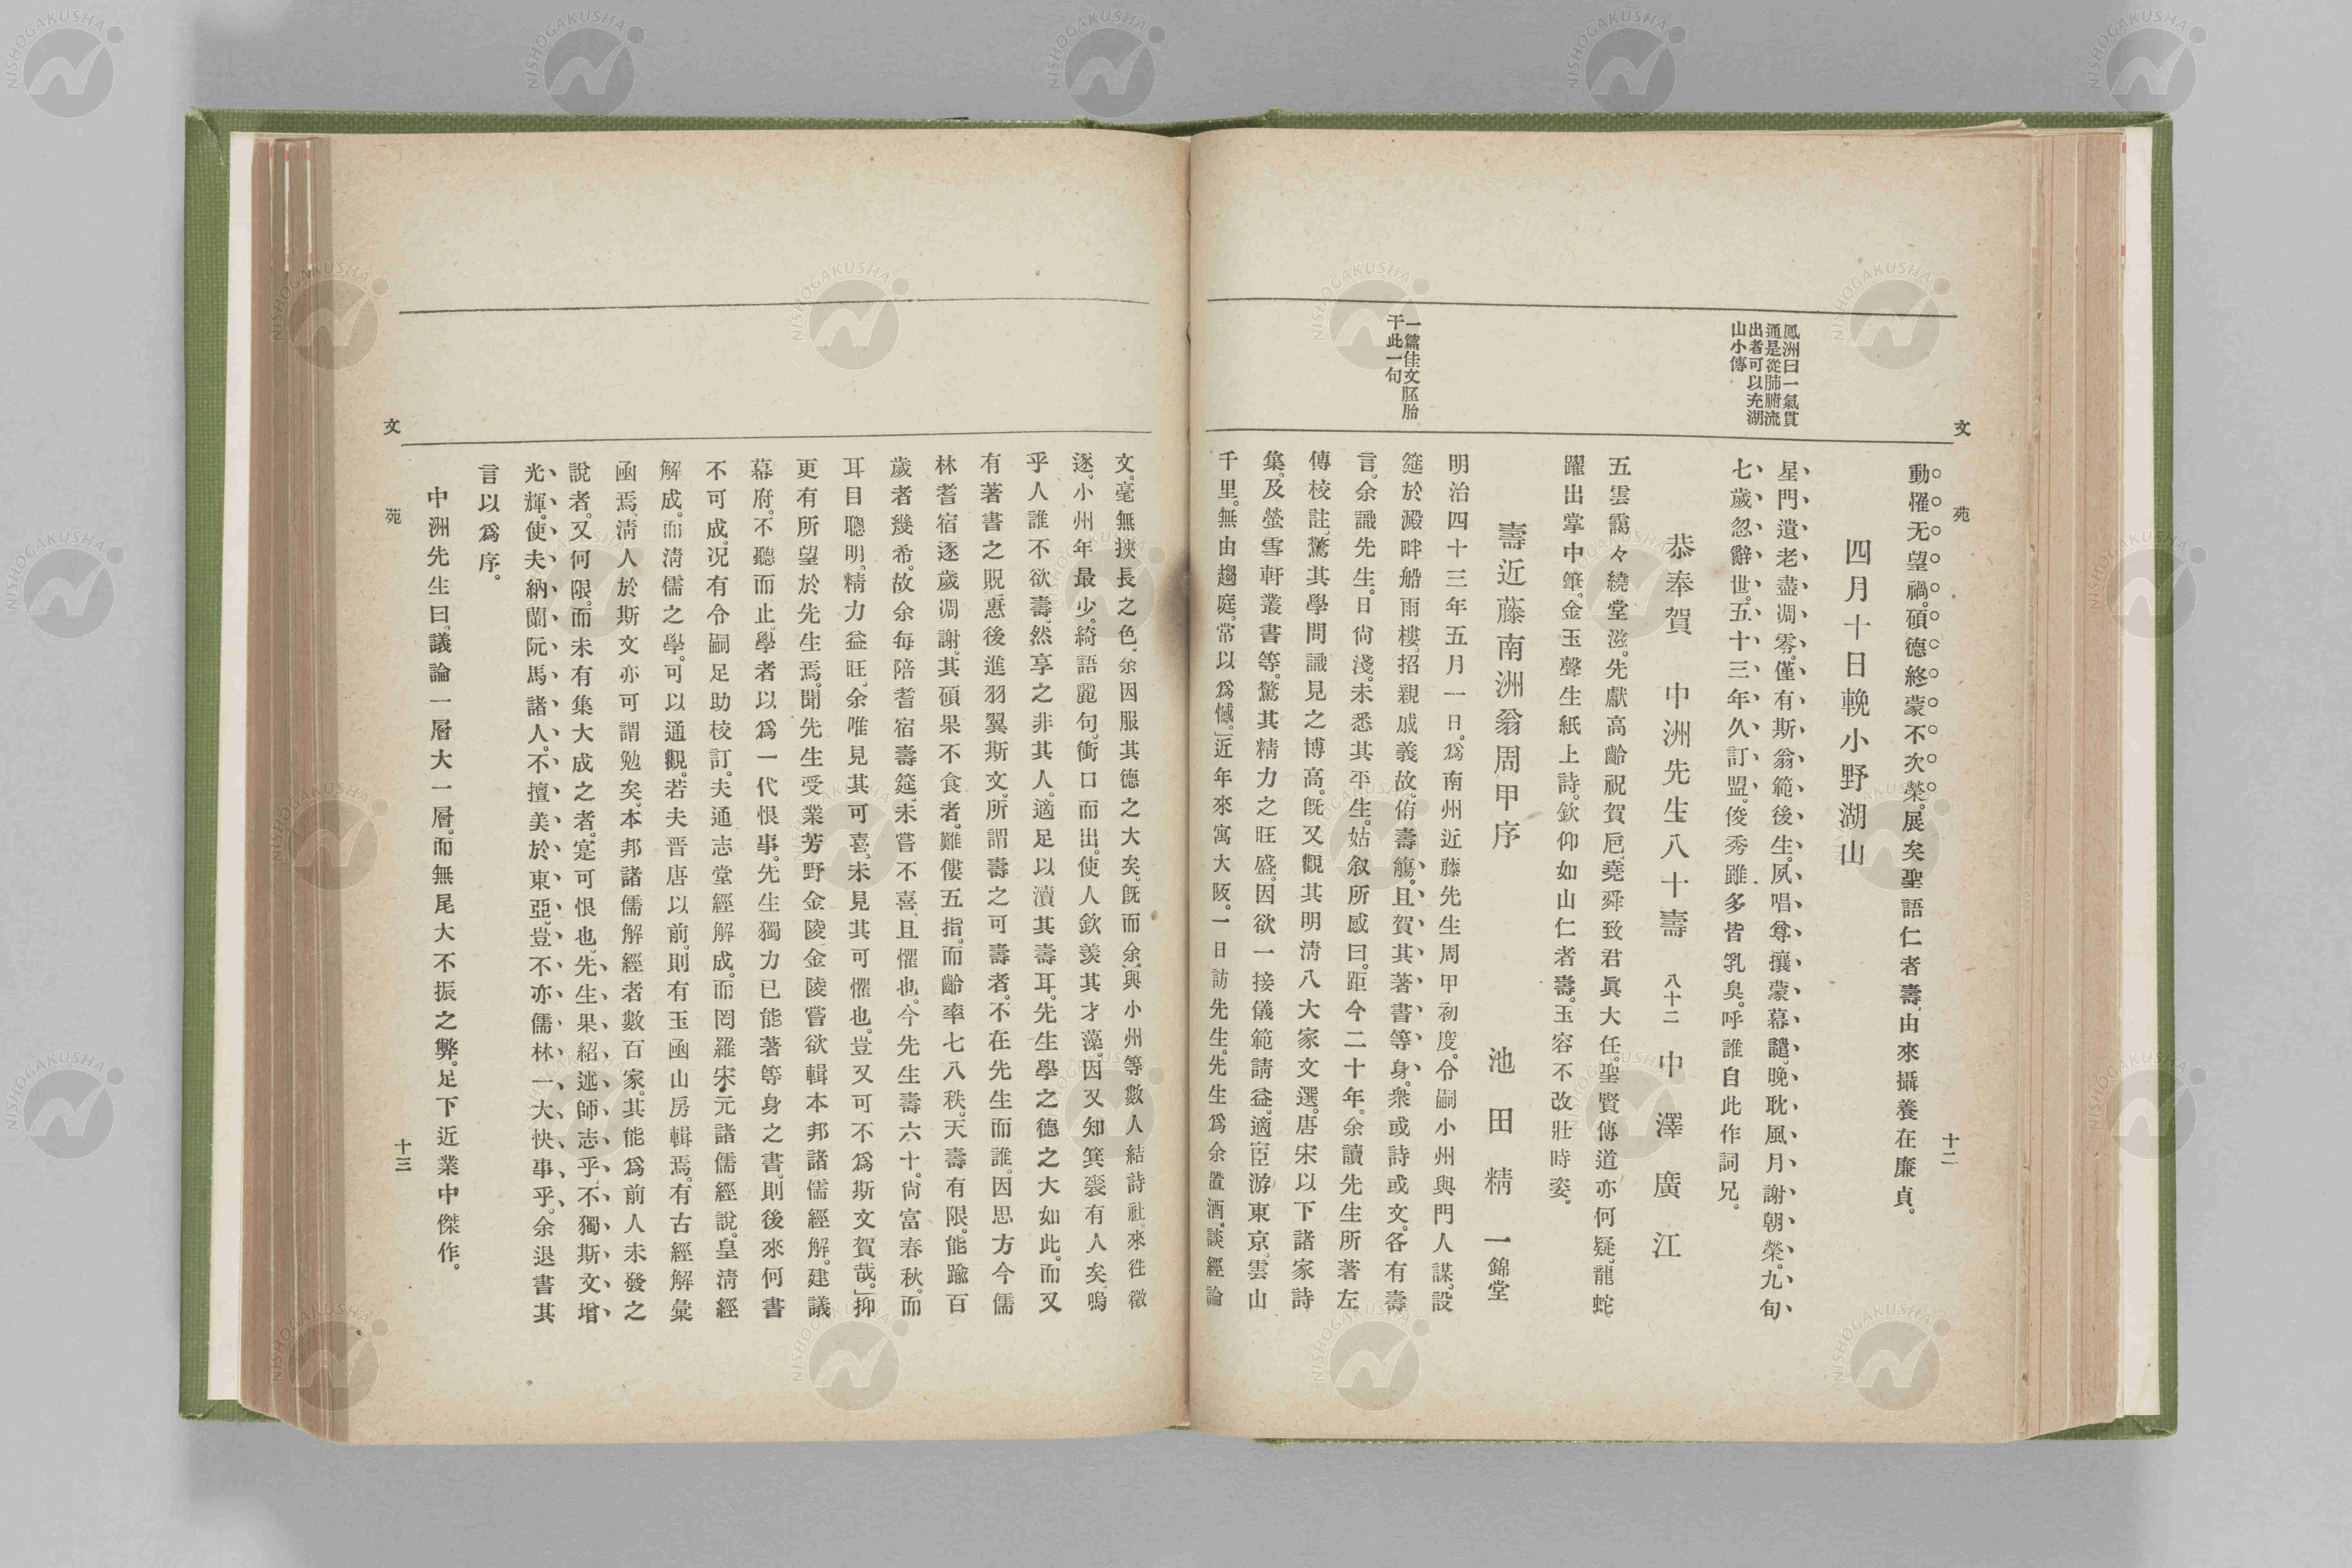 文苑
十二
動罹无望禍。碩德終蒙不次榮。展矣聖語仁者壽、由來攝養在廉貞。
四月十日輓小野湖山
鳳洲曰一氣貫
通是從肺腑流
出者可以充湖
山小傳
星門遺老盡凋零。僅有斯翁範後生。夙唱尊攘蒙幕譴、晚耽風月謝朝榮。九旬
七歲忽辭世。五十三年久訂盟。俊秀雖多皆乳臭。呼誰自此作詞兄。
恭奉賀 中洲先生八十壽 八十二 中澤廣江
五雲靄々繞堂滋。先獻高齡祝賀巵。堯舜致君眞大任。聖賢傳道亦何疑。龍蛇
躍出掌中筆。金玉聲生紙上詩。欽仰如山仁者壽。玉容不改壯時姿。
壽近藤南洲翁周甲序 池田精一錦堂
明治四十三年五月一日。爲南州近藤先生周甲初度。令嗣小州與門人謀、設
一篇佳文胚胎
于此一句
筵於澱畔船雨樓、招親戚義故、侑壽觴。且賀其著書等身。衆或詩或文、各有壽
言。余識先生。日尙淺。未悉其平生。姑叙所感曰。距今二十年。余讀先生所著左
傳校註、驚其學問識見之博高。旣又觀其明淸八大家文選。唐宋以下諸家詩
集。及螢雪軒叢書等。驚其精力之旺盛。因欲一接儀範請益。適宦游東京、雲山
千里。無由趨庭。常以爲憾。」近年來寓大阪。一日訪先生。先生爲余置酒。談經論
文。毫無挾長之色、余因服其德之大矣。旣而余與小州等數人結詩社。來往徵
逐。小州年最少。綺語麗句。衝口而出。使人欽羨其才藻。因又知箕裘有人矣。嗚
乎人誰不欲壽。然享之非其人。適足以瀆其壽耳。先生學之德之大如此。而又
有著書之貺惠後進羽翼斯文。所謂壽之可壽者。不在先生而誰。因思方今儒
林耆宿逐歲凋謝。其碩果不食者。難僂五指。而齡率七八秩。天壽有限。能踰百
歲者幾希。故余每陪耆宿壽筵。未嘗不喜、且懼也。今先生壽六十。尙富春秋。而
耳目聰明。精力益旺。余唯見其可喜。未見其可懼也。豈又可不爲斯文賀哉。」抑
更有所望於先生焉。聞先生受業芳野金陵金陵嘗欲輯本邦諸儒經解。建議
幕府。不聽而止。學者以爲一代恨事。先生獨力已能著等身之書。則後來何書
不可成。况有令嗣足助校訂。夫通志堂經解成。而罔羅宋元諸儒經說。皇淸經
解成。而淸儒之學。可以通觀。若夫晋唐以前。則有玉函山房輯焉。有古經解彙
函焉、淸人於斯文亦可謂勉矣。本邦諸儒解經者數百家。其能爲前人未發之
說者。又何限。而未有集大成之者。寔可恨也。先生果紹述師志乎。不獨斯文增
光輝。使夫納蘭阮馬諸人。不擅美於東亞。豈不亦儒林一大快事乎。余退書其
言以爲序。
中洲先生曰。議論一層大一層。而無尾大不振之弊。足下近業中傑作。
文苑
十三